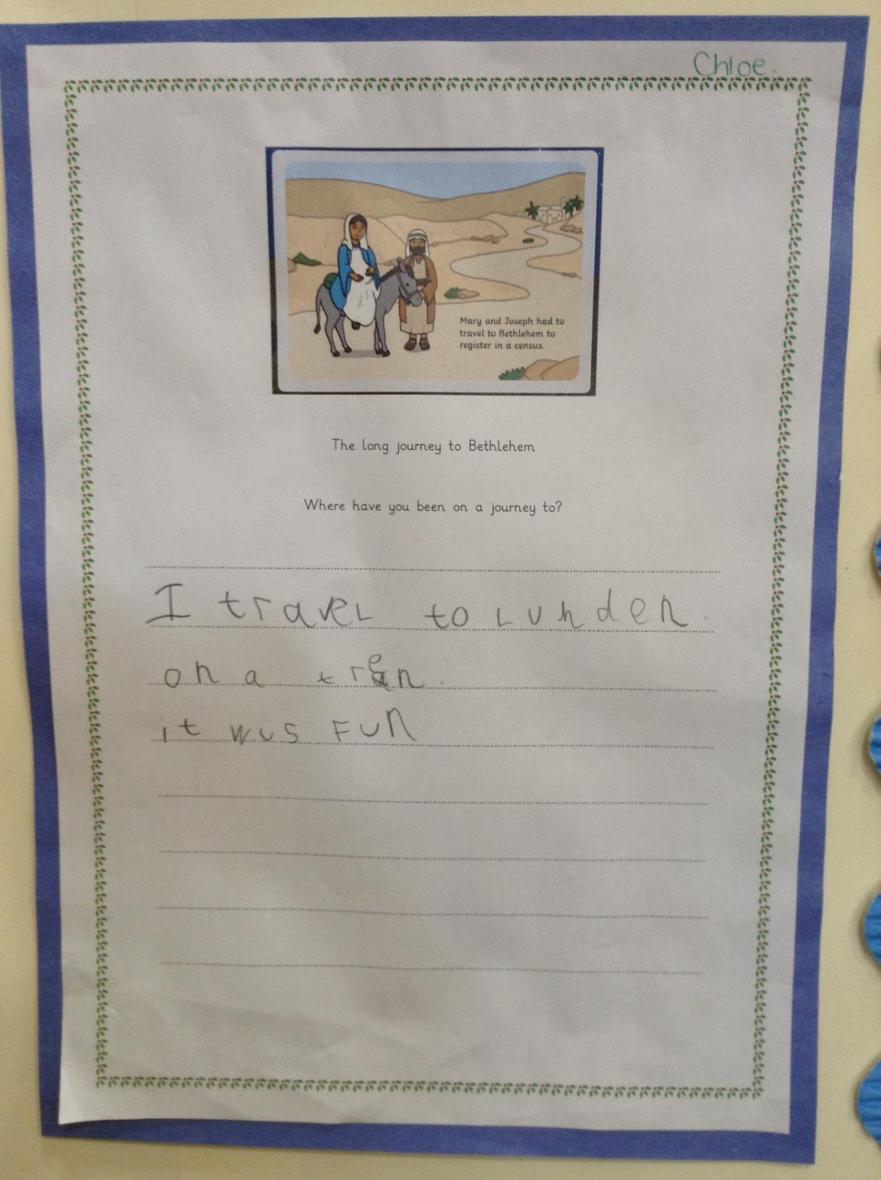 Chloe.
Mary and Joseph had to
travel to Bethlehem to
register in a census.
The long journey to Bethlehem
Where have you been on a journey to?
I travel to Lunden.
on a tren.
it wus Fun